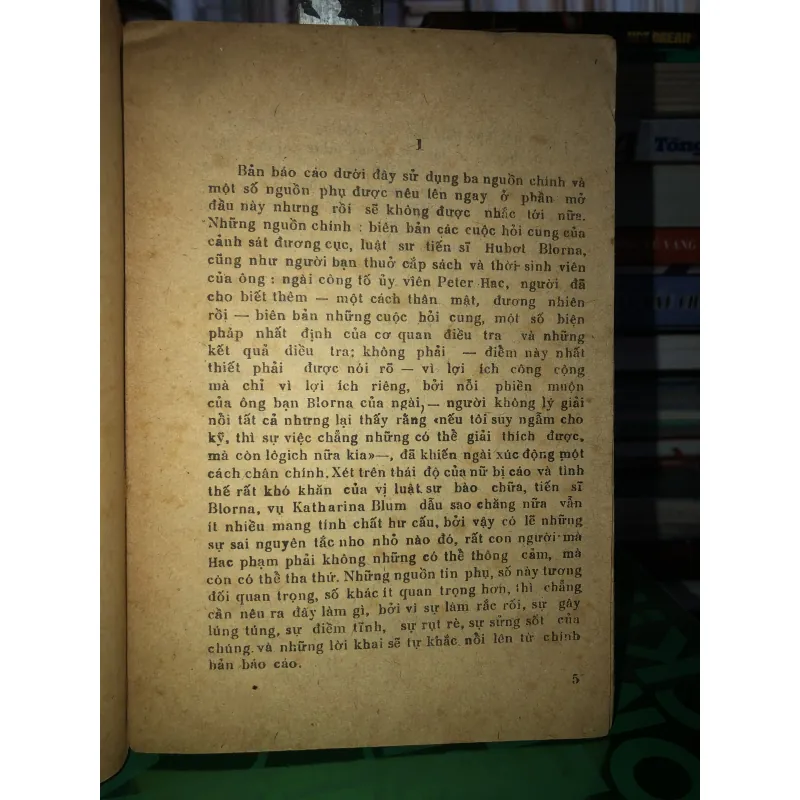 1
Bản báo cáo dưới đây sử dụng ba nguồn chính và
một số nguồn phụ được nêu lên ngay ở phần mở
đầu này nhưng rồi sẽ không được nhắc tới nữa.
Những nguồn chính : biên bản các cuộc hỏi cung của
cảnh sát đương cục, luật sư tiến sĩ Hubơt Blorna,
cũng như người bạn thuở cắp sách và thời sinh viên
của ông : ngài công tố ủy viên Peter Hac, người đã
cho biết thêm — một cách thân mật, đương nhiên
rồi — biên bản những cuộc hỏi cung, một số biện
pháp nhất định của cơ quan điều tra và những
kết quả điều tra; không phải — điểm này nhất
thiết phải được nói rõ — vì lợi ích công cộng
mà chỉ vì lợi ích riêng, bởi nỗi phiền muộn
của ông bạn Blorna của ngài, — người không lý giải
nổi tất cả nhưng lại thấy rằng «nếu tôi suy ngẫm cho
kỹ, thì sự việc chẳng những có thể giải thích được,
mà còn lôgich nữa kia»—, đã khiến ngài xúc động một
cách chân chính. Xét trên thái độ của nữ bị cáo và tình
thế rất khó khăn của vị luật sư bào chữa, tiến sĩ
Blorna, vụ Katharina Blum dẫu sao chăng nữa vẫn
ít nhiều mang tính chất hư cấu, bởi vậy có lẽ những
sự sai nguyên tắc nho nhỏ nào đó, rất con người mà
Hac phạm phải không những có thể thông cảm, mà
còn có thể tha thứ. Những nguồn tin phụ, số này tương
đối quan trọng, số khác ít quan trọng hơn, thì chẳng
cần nêu ra đây làm gì, bởi vì sự làm rắc rối, sự gây
lúng túng, sự điềm tĩnh, sự rụt rè, sự sửng sốt của
chúng và những lời khai sẽ tự khắc nổi lên từ chính
bản báo cáo.
5
HOT BREAD
Tổng